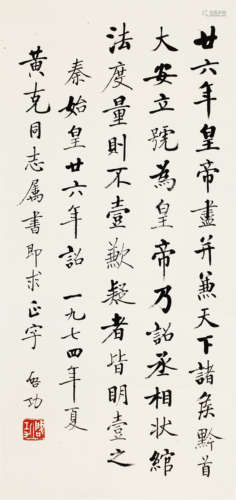 廿六年皇帝盡并兼天下諸矦黔首
大安立號為皇帝乃詔丞相狀綰
法度量則不壹歉疑者皆明壹之
秦始皇廿六年詔 一九七四年夏
黃克同志屬書即求正字 啟功